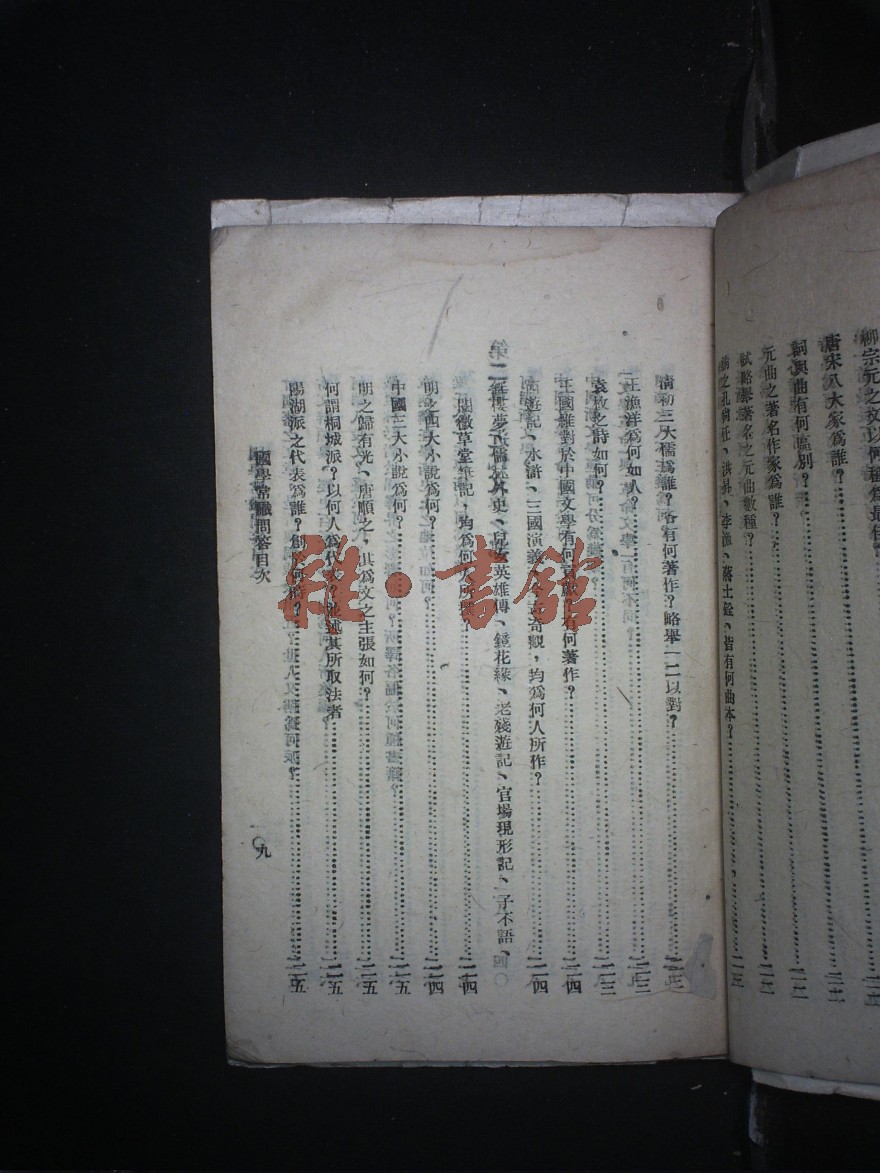 柳宗元之文以何種爲最佳
唐宋八大家爲誰？
詞與曲有何區別？
元曲之著名作家爲誰？
試略舉著名之元曲數種？
清之孔尚任、洪昇、李漁、蔣士銓、皆有何曲本？
清初三大儒爲誰？各有何著作？略舉一二以對？
王漁洋爲何如人？
袁枚之詩如何？
王國維對於中國文學有何貢獻？有何著作？ 二四
西遊記、水滸、三國演義、今古奇觀，均爲何人所作？ 二四
紅樓夢、儒林外史、兒女英雄傳、鏡花緣、老殘遊記、官場現形記、子不語、
閱微草堂筆記，均爲何人所撰？ 二四
明之四大小說爲何？ 二四
中國三大小說爲何？ 二五
明之歸有光、唐順之、其爲文之主張如何？ 二五
何謂桐城派？以何人爲代表？並述其所取法者 二五
陽湖派之代表爲誰？創於何時？ 二五
國學常識問答目次
九
雜·書館